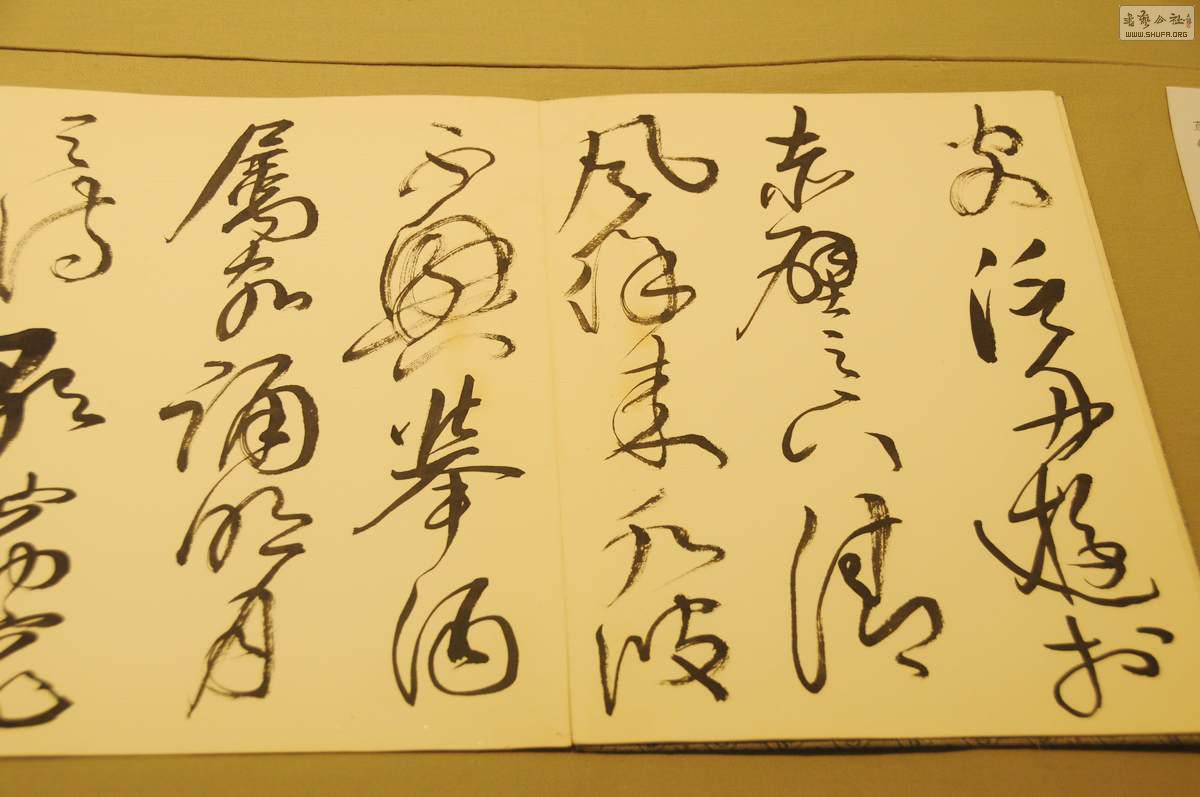 客泛舟遊於
赤壁之下清
風徐來水波
不興舉酒
屬客誦明月
之詩歌窈窕
書藝公社
WWW.SHUFA.ORG